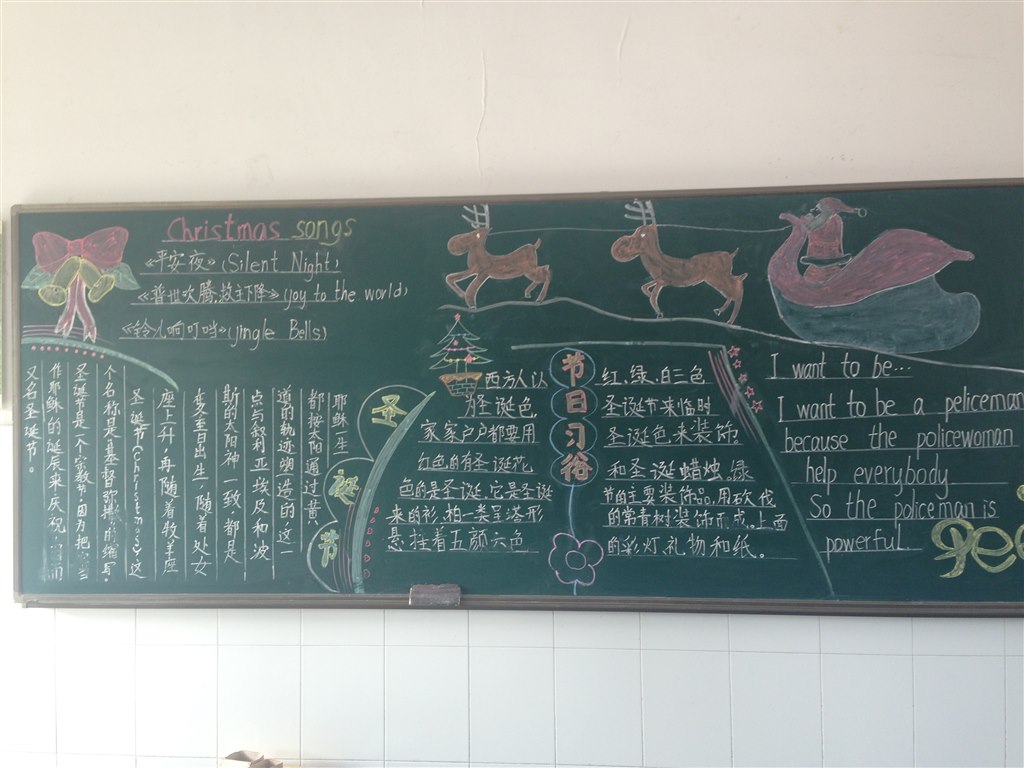 Christmas songs
《平安夜》(Silent Night)
《普世欢腾,救主下降》(Joy to the world)
《铃儿响叮当》(Jingle Bells)
圣诞节
耶稣一生
都按太阳通过黄
道的轨迹塑造的这一
点与叙利亚埃及和波
斯的太阳神一致都是
冬至日出生,随着处女
座上升,再随着牧羊座
圣诞节(Christmas)这
个名称是基督弥撒的缩写。
圣诞节是一个宗教节,因为把
作耶稣的诞辰来庆祝,
又名圣诞节。
节日习俗
西方人以
为圣诞色
家家户户都要用
红色的有圣诞花,
色的是圣诞,它是圣诞
来的衫,柏一类呈塔形
悬挂着五颜六色
红、绿、白三色
圣诞节来临时
圣诞色来装饰
和圣诞蜡烛,绿
节的主要装饰品,用砍伐
的常青树装饰而成。上面
的彩灯,礼物和纸。
I want to be...
I want to be a peliceman
because the policewoman
help everybody
So the policeman is
powerful